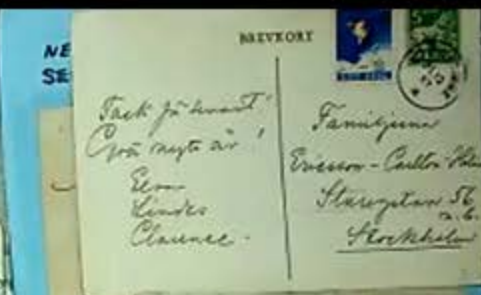 NE
SE
BREVKORT
Tack för
Gott nytt år!
Elsa
Lindes
Clarence.
Familjerna
Ericsson - Carlton
Sturegatan 56
Stockholm